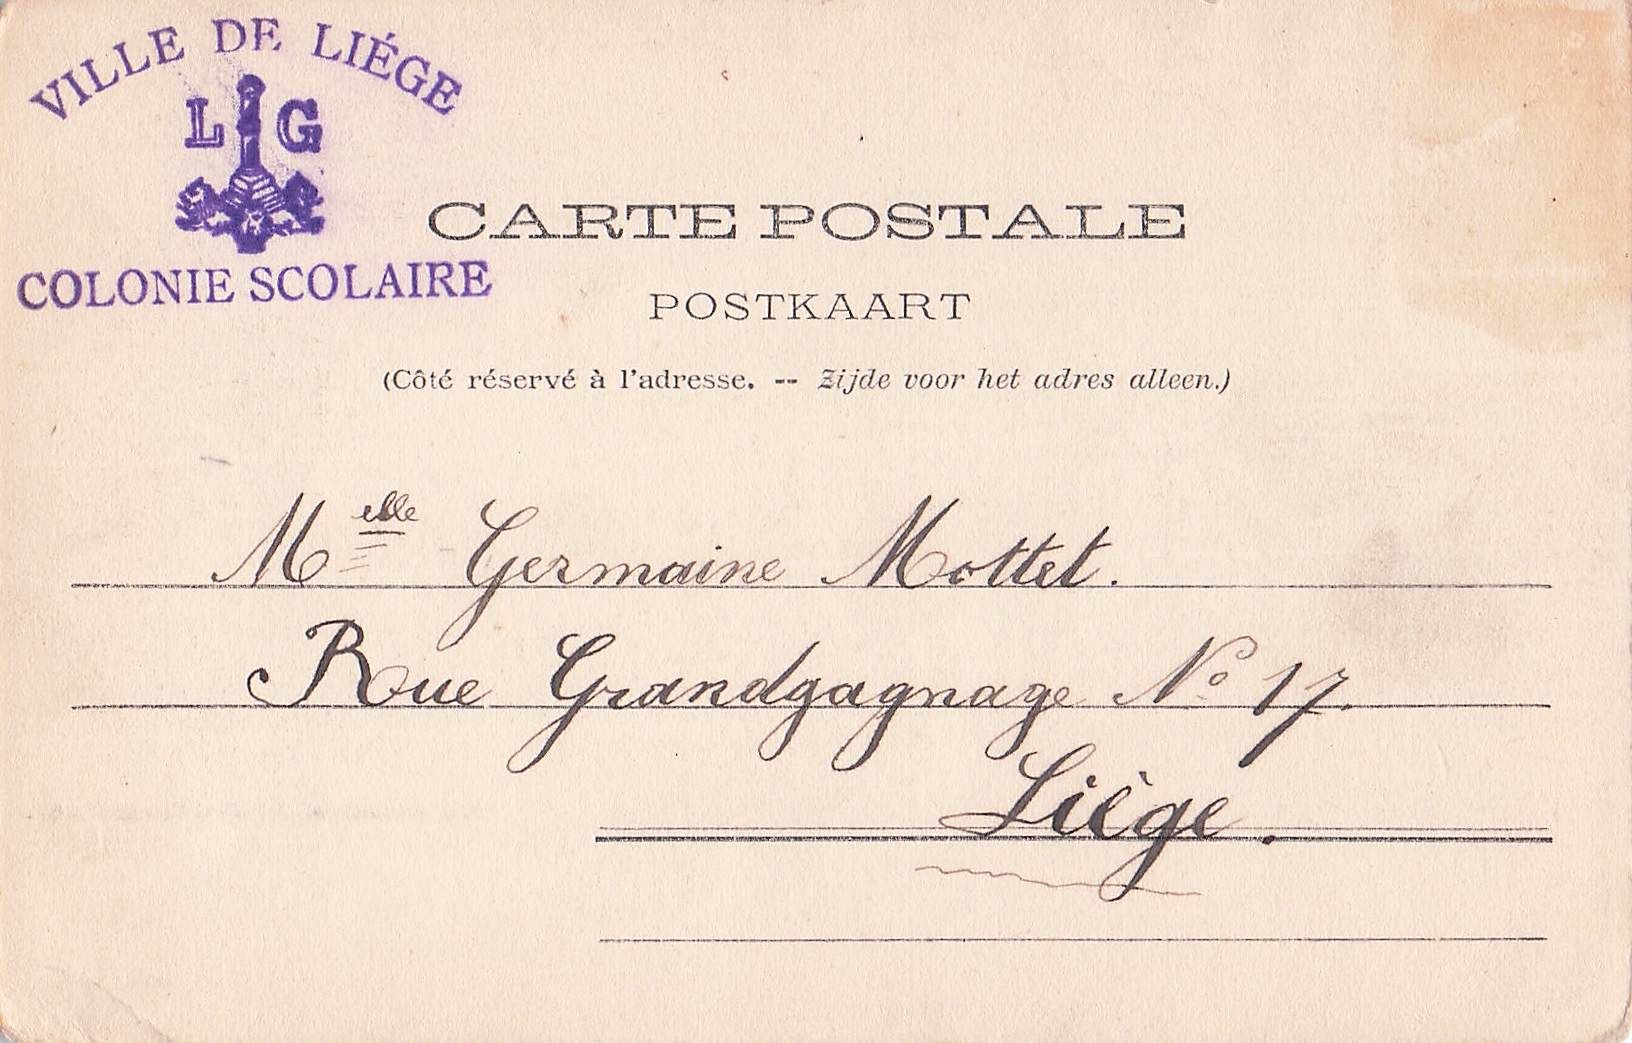 VILLE DE LIÉGE
L G
COLONIE SCOLAIRE
CARTE POSTALE
POSTKAART
(Côté réservé à l'adresse. -- Zijde voor het adres alleen.)
Melle Germaine Mottet.
Rue Grandgagnage No 17.
Liège.